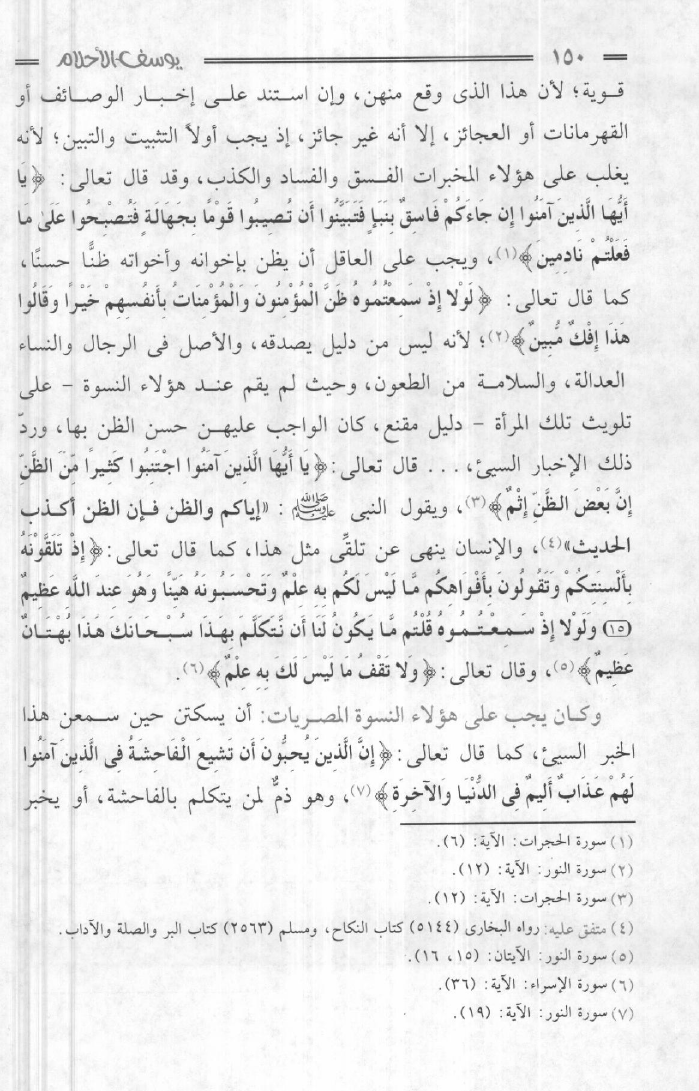 ١٥٠ يوسف الأحلام
قوية؛ لأن هذا الذى وقع منهن، وإن استند على إخبار الوصائف أو
القهرمانات أو العجائز، إلا أنه غير جائز، إذ يجب أولاً التثبيت والتبين؛ لأنه
يغلب على هؤلاء المخبرات الفسق والفساد والكذب، وقد قال تعالى: ﴿ يَا
أَيُّهَا الَّذِينَ آمَنُوا إِن جَاءَكُمْ فَاسِقٌ بِنَبَإٍ فَتَبَيَّنُوا أَن تُصِيبُوا قَوْمًا بِجَهَالَةٍ فَتُصْبِحُوا عَلَىٰ مَا
فَعَلْتُمْ نَادِمِينَ ﴾(١)، ويجب على العاقل أن يظن بإخوانه وأخواته ظنًّا حسنًا،
كما قال تعالى: ﴿ لَوْلا إِذْ سَمِعْتُمُوهُ ظَنَّ الْمُؤْمِنُونَ وَالْمُؤْمِنَاتُ بِأَنفُسِهِمْ خَيْرًا وَقَالُوا
هَذَا إِفْكٌ مُّبِينٌ ﴾(٢)؛ لأنه ليس من دليل يصدقه، والأصل فى الرجال والنساء
العدالة، والسلامة من الطعون، وحيث لم يقم عند هؤلاء النسوة - على
تلويث تلك المرأة - دليل مقنع، كان الواجب عليهن حسن الظن بها، وردّ
ذلك الإخبار السيئ، ... قال تعالى: ﴿ يَا أَيُّهَا الَّذِينَ آمَنُوا اجْتَنِبُوا كَثِيرًا مِّنَ الظَّنِّ
إِنَّ بَعْضَ الظَّنِّ إِثْمٌ ﴾(٣)، ويقول النبى ﷺ: «إياكم والظن فإن الظن أكذب
الحديث»(٤)، والإنسان ينهى عن تلقِّى مثل هذا، كما قال تعالى: ﴿ إِذْ تَلَقَّوْنَهُ
بِأَلْسِنَتِكُمْ وَتَقُولُونَ بِأَفْوَاهِكُم مَّا لَيْسَ لَكُم بِهِ عِلْمٌ وَتَحْسَبُونَهُ هَيِّنًا وَهُوَ عِندَ اللَّهِ عَظِيمٌ
(١٥) وَلَوْلا إِذْ سَمِعْتُمُوهُ قُلْتُم مَّا يَكُونُ لَنَا أَن نَّتَكَلَّمَ بِهَذَا سُبْحَانَكَ هَذَا بُهْتَانٌ
عَظِيمٌ ﴾(٥)، وقال تعالى: ﴿ وَلا تَقْفُ مَا لَيْسَ لَكَ بِهِ عِلْمٌ ﴾(٦).
وكان يجب على هؤلاء النسوة المصريات: أن يسكتن حين سمعن هذا
الخبر السيئ، كما قال تعالى: ﴿ إِنَّ الَّذِينَ يُحِبُّونَ أَن تَشِيعَ الْفَاحِشَةُ فِى الَّذِينَ آمَنُوا
لَهُمْ عَذَابٌ أَلِيمٌ فِى الدُّنْيَا وَالآخِرَةِ ﴾(٧)، وهو ذمٌّ لمن يتكلم بالفاحشة، أو يخبر
(١) سورة الحجرات: الآية: (٦).
(٢) سورة النور: الآية: (١٢).
(٣) سورة الحجرات: الآية: (١٢).
(٤) متفق عليه: رواه البخارى (٥١٤٤) كتاب النكاح، ومسلم (٢٥٦٣) كتاب البر والصلة والآداب.
(٥) سورة النور: الآيتان: (١٥، ١٦).
(٦) سورة الإسراء: الآية: (٣٦).
(٧) سورة النور: الآية: (١٩).